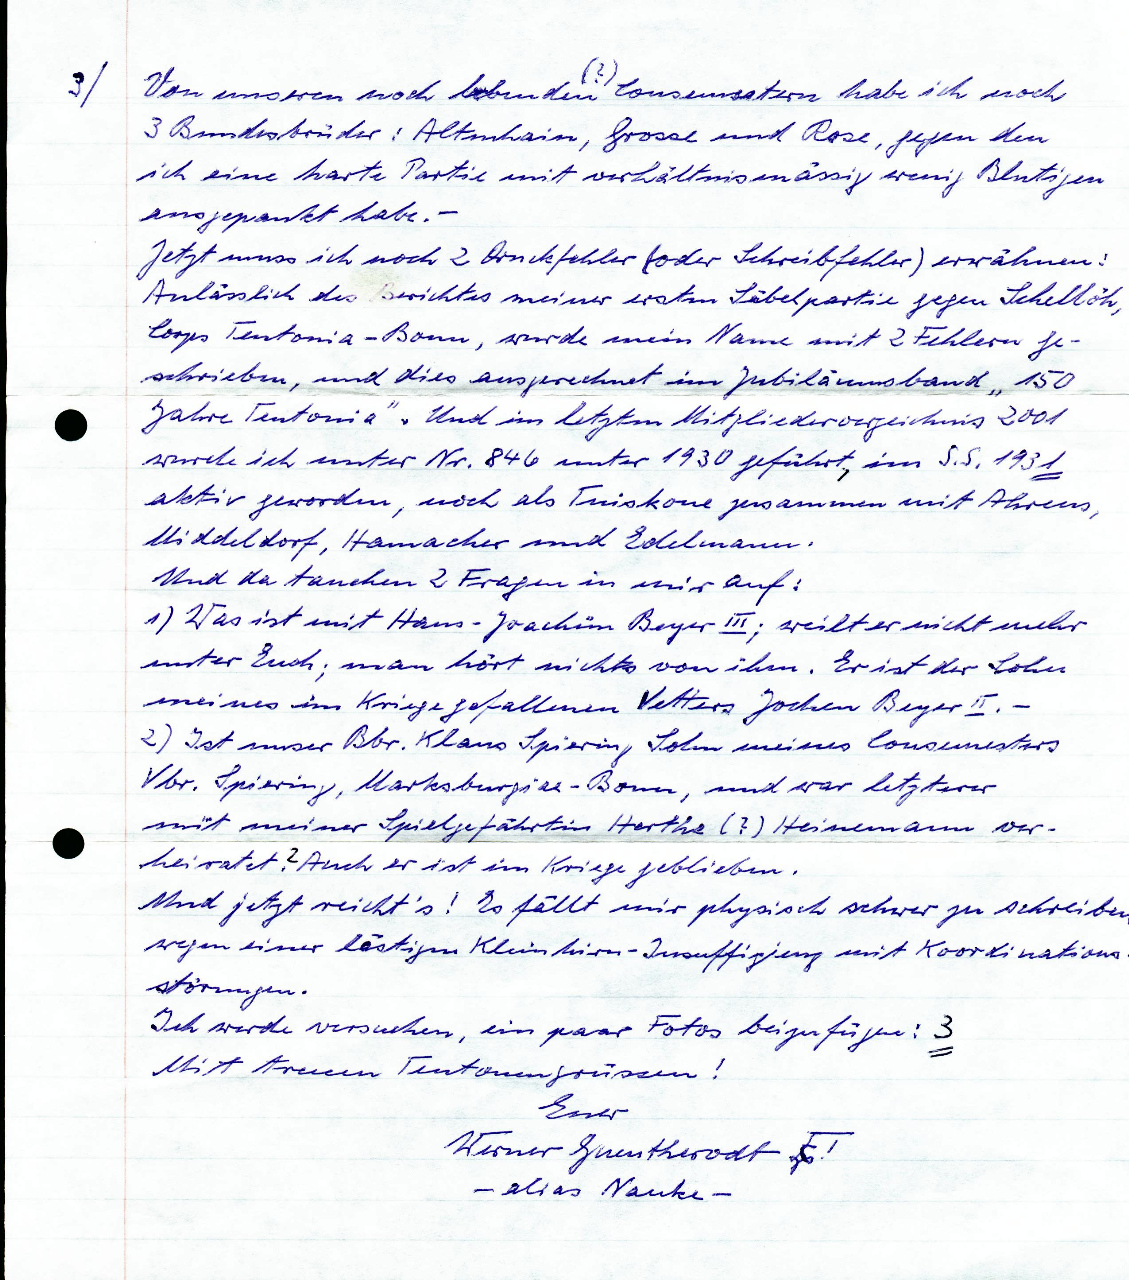 3/ Von unseren noch lebenden (?) Consemestern habe ich noch
3 Bundesbrüder: Altenhain, Grosse und Rose, gegen den
ich eine harte Partie mit verhältnismässig wenig Blutigen
ausgepaukt habe.-
Jetzt muss ich noch 2 Druckfehler (oder Schreibfehler) erwähnen:
Anlässlich des Berichtes meiner ersten Säbelpartie gegen Schellöh,
Corps Teutonia-Bonn, wurde mein Name mit 2 Fehlern ge-
schrieben, und dies ausgerechnet im Jubiläumsband „150
Jahre Teutonia". Und im letzten Mitgliederverzeichnis 2001
wurde ich unter Nr. 846 unter 1930 geführt, im S.S. 1931
aktiv geworden, noch als Tuiskone zusammen mit Ahrens,
Middeldorf, Hamacher und Edelmann.
Und da tauchen 2 Fragen in mir auf:
1) Was ist mit Hans-Joachim Beyer III; weilt er nicht mehr
unter Euch; man hört nichts von ihm. Er ist der Sohn
meines im Kriege gefallenen Vetters Jochen Beyer II.-
2) Ist unser Bbr. Klaus Spiering Sohn meines Consemesters
Vbr. Spiering, Marksburgiae-Bonn, und war letzterer
mit meiner Spielgefährtin Hertha (?) Heinemann ver-
heiratet? Auch er ist im Kriege geblieben.
Und jetzt reicht's! Es fällt mir physisch schwer zu schreiben
wegen einer lästigen Kleinhirn-Insuffizienz mit Koordinations-
störungen.
Ich werde versuchen, ein paar Fotos beizufügen: 3
Mit treuen Teutonengrüssen!
Euer
Werner Guentherodt
-alias Nauke-